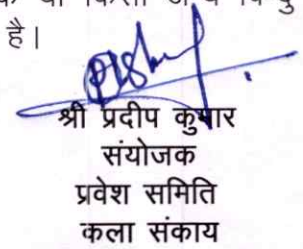 है।
श्री प्रदीप कुमार
संयोजक
प्रवेश समिति
कला संकाय